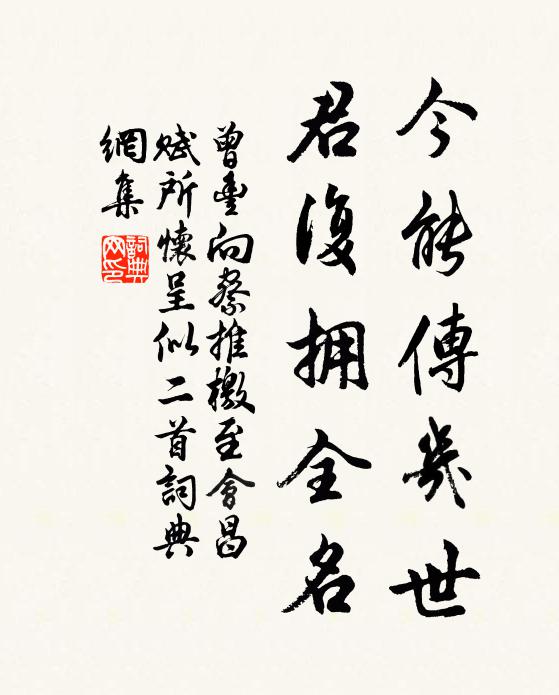 今能傳幾世
君復拥全名
曾豐向察推檄至會昌
賦所懷呈似二首詞典
網集
詞典网印